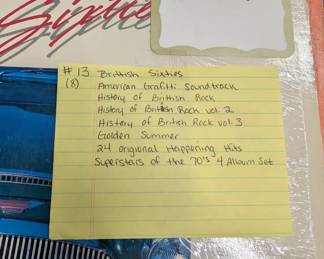 Sixties
#13 Brittish Sixties
(8) American Grafitti Soundtrack
History of Brittish Rock
History of British Rock vol. 2
History of British Rock vol. 3
Golden Summer
24 Origional Happening Hits
Superstars of the 70's 4 Album Set